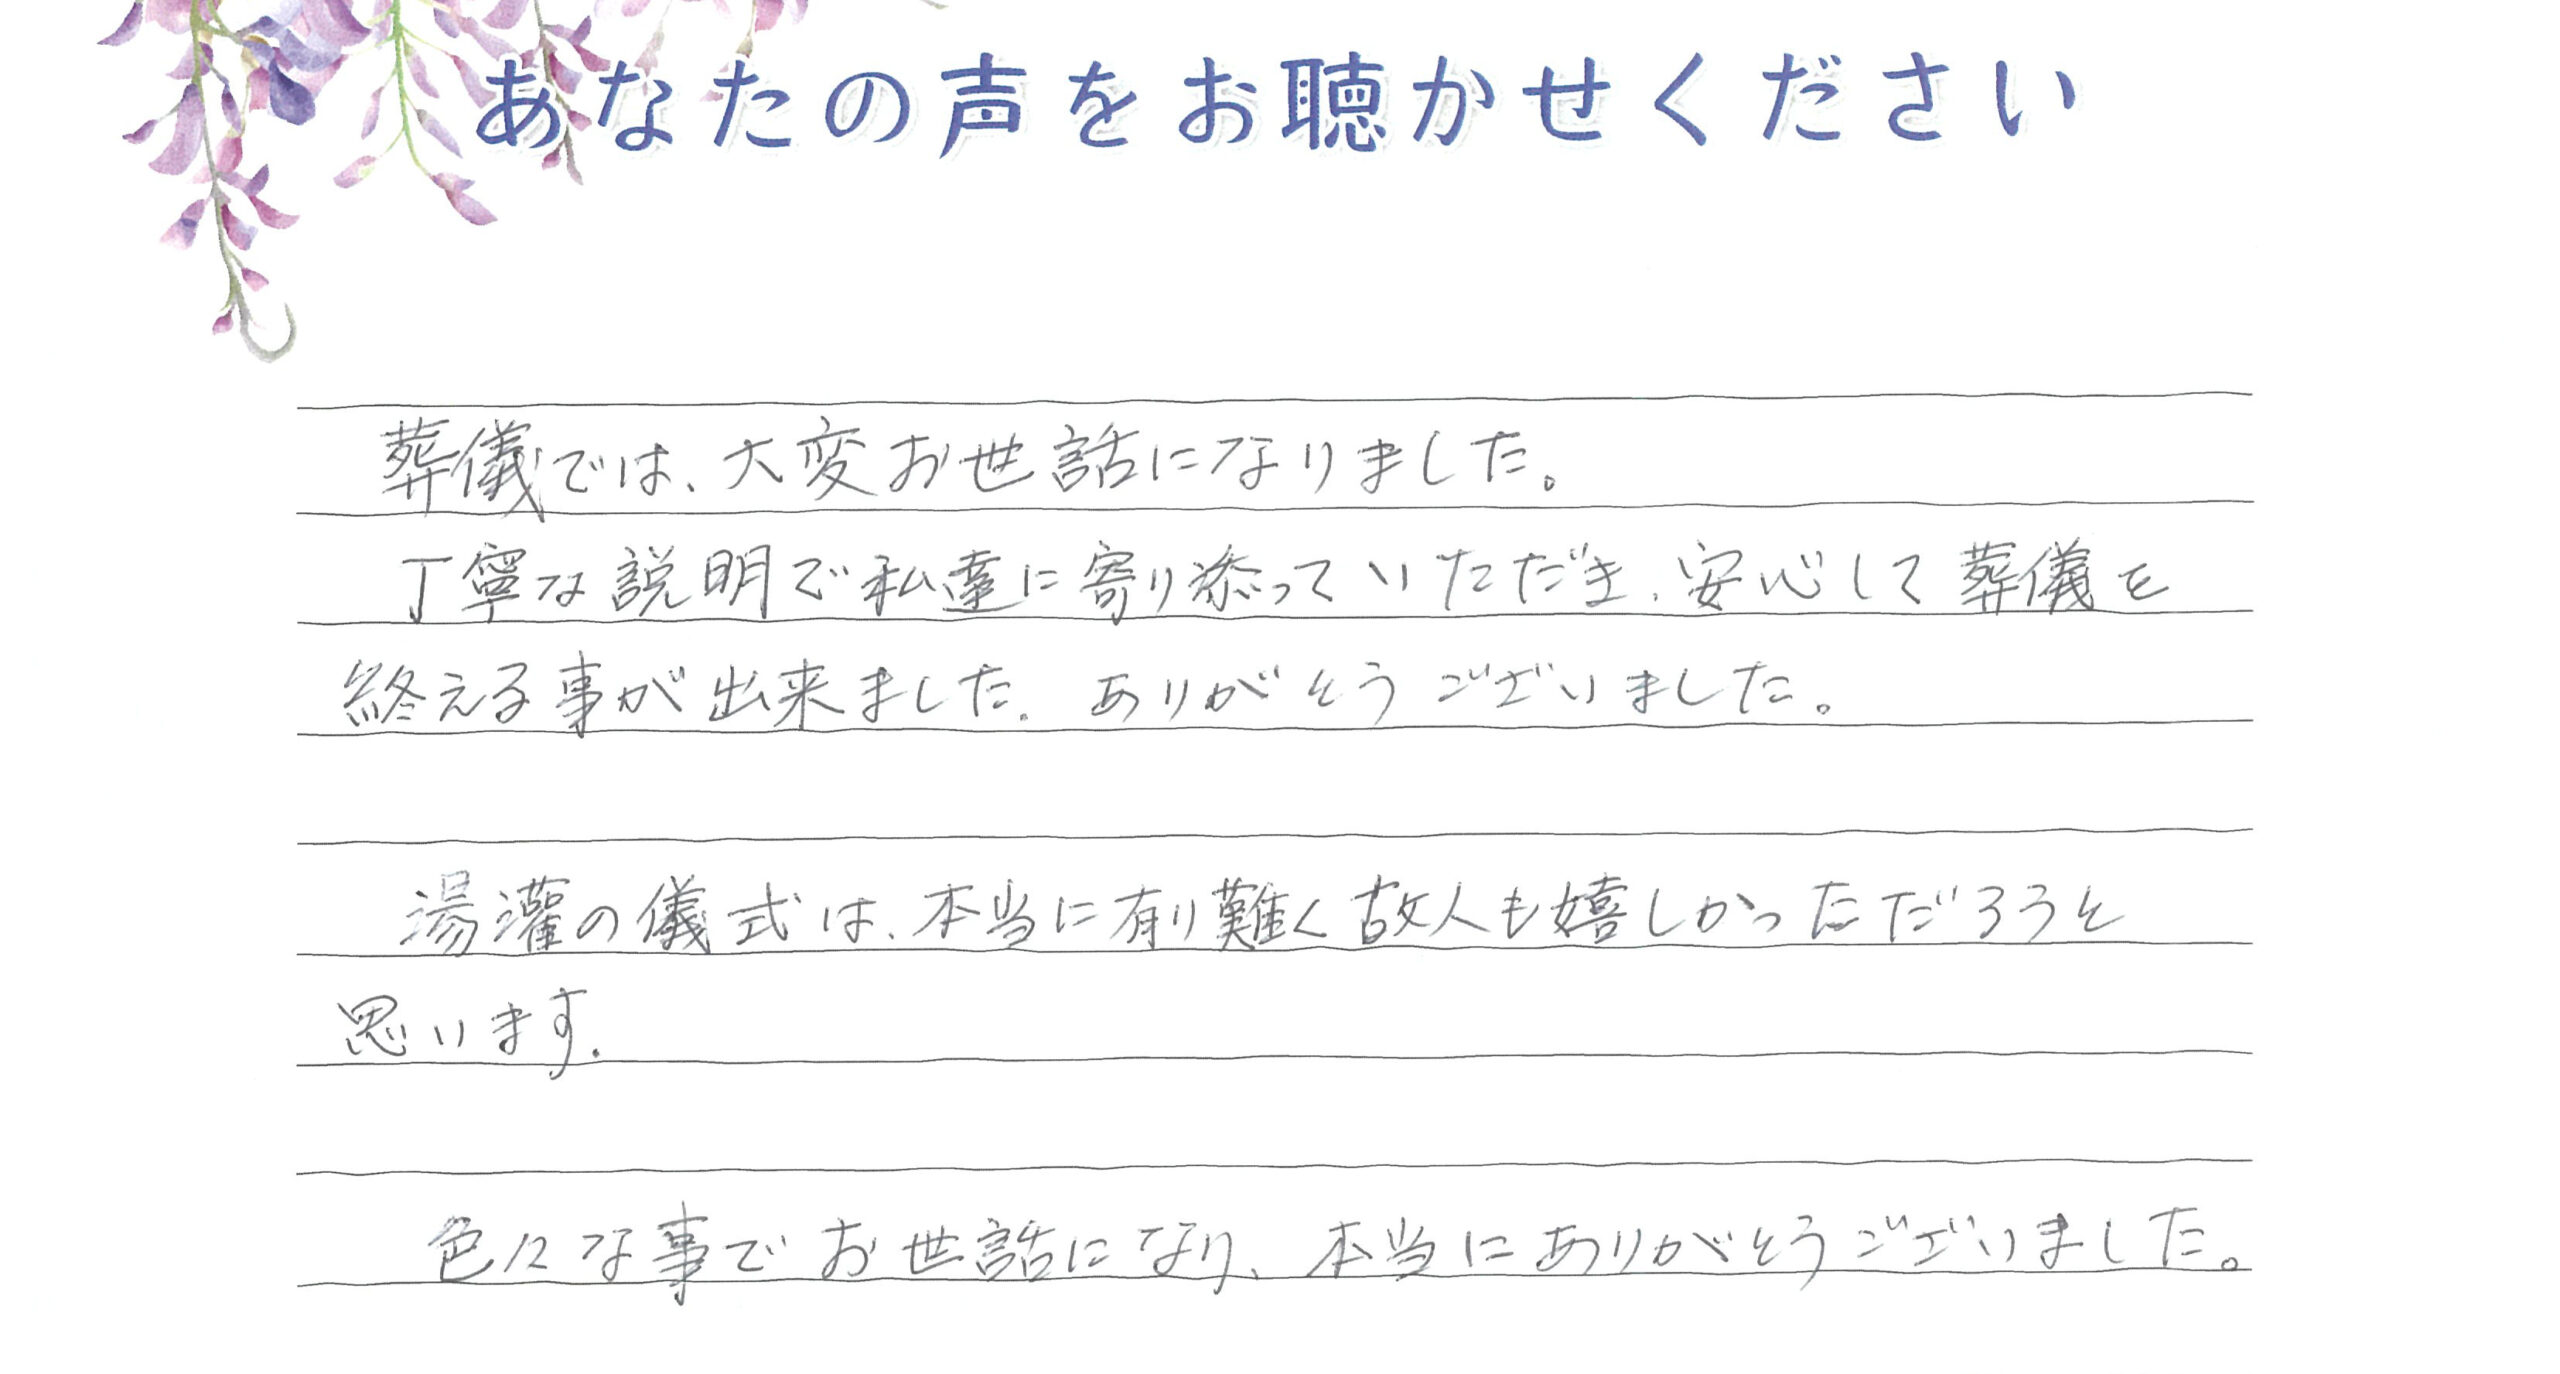 あなたの声をお聴かせください
葬儀では、大変お世話になりました。
丁寧な説明で私達に寄り添っていただき、安心して葬儀を
終える事が出来ました。ありがとうございました。
湯灌の儀式は、本当に有り難く故人も嬉しかっただろうと
思います。
色々な事でお世話になり、本当にありがとうございました。